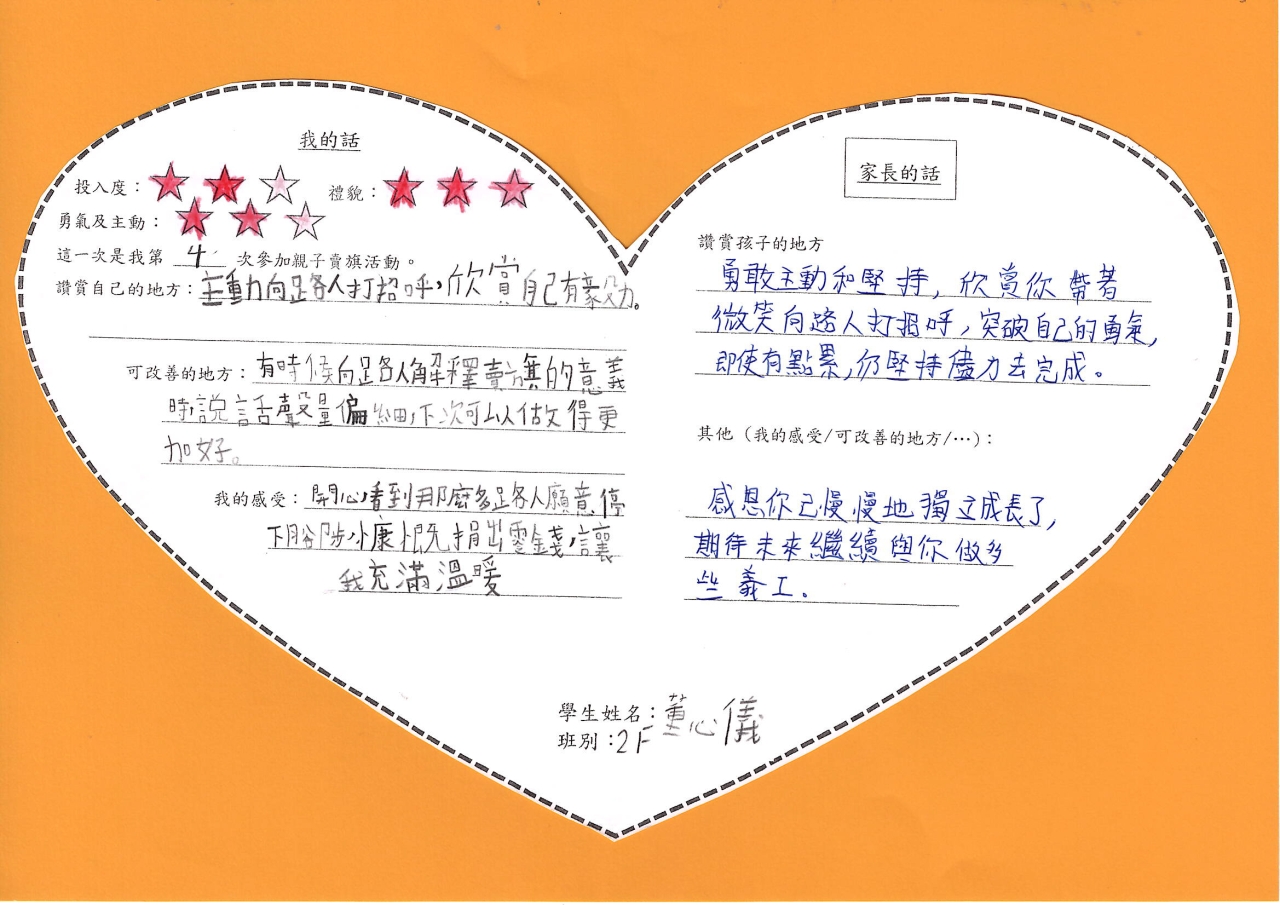 我的話
投入度：☆☆☆ 禮貌：☆☆☆
勇氣及主動：☆☆☆
這一次是我第 4 次參加親子賣旗活動。
讚賞自己的地方：主動向路人打招呼，欣賞自己有毅力。
可改善的地方：有時候向路人解釋賣旗的意義
時，說話聲量偏細，下次可以做得更
加好。
我的感受：開心，看到那麼多路人願意停
下腳步，慷慨捐出零錢，讓
我充滿溫暖
家長的話
讚賞孩子的地方
勇敢主動和堅持，欣賞你帶著
微笑向路人打招呼，突破自己的勇氣，
即使有點累，仍堅持儘力去完成。
其他（我的感受/可改善的地方/…）：
感恩你已慢慢地獨立成長了，
期待未來繼續與你做多
些義工。
學生姓名：董心儀
班別：2F